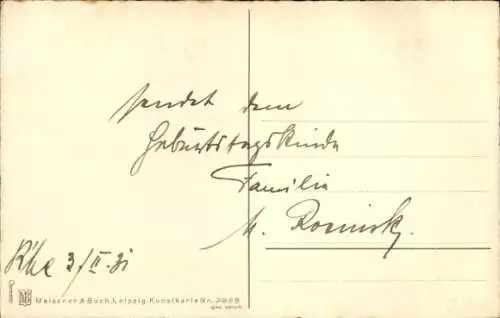 sendet dem
Geburtstagskinde
Familie
M. Rosinsky.
3/II. 31
Meissner & Buch, Leipzig. Kunstkarte Nr. 2968